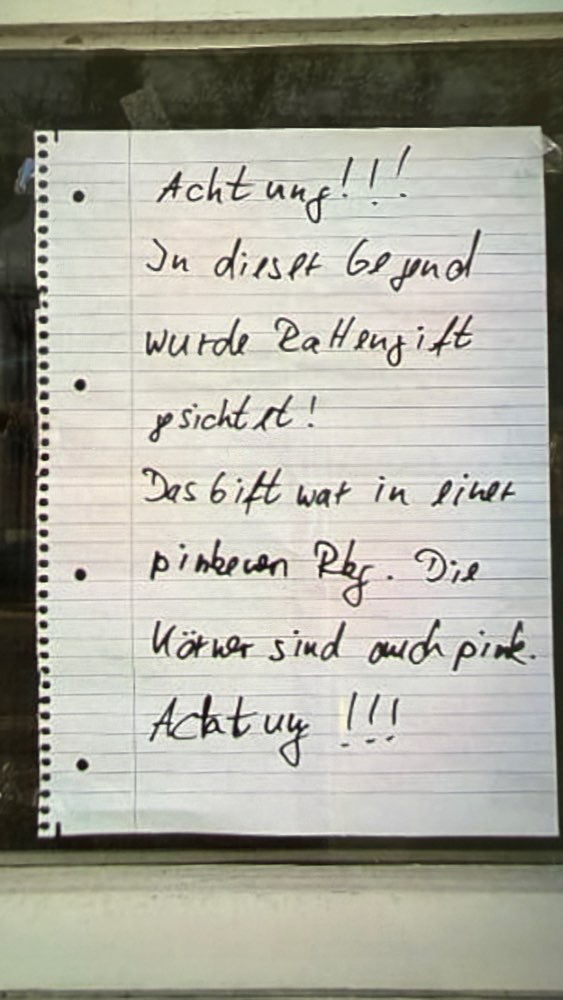 Achtung!!!
In dieser Gegend
wurde Rattengift
gesichtet!
Das Gift war in einer
pinkenen Pkg. Die
Körner sind auch pink.
Achtung !!!